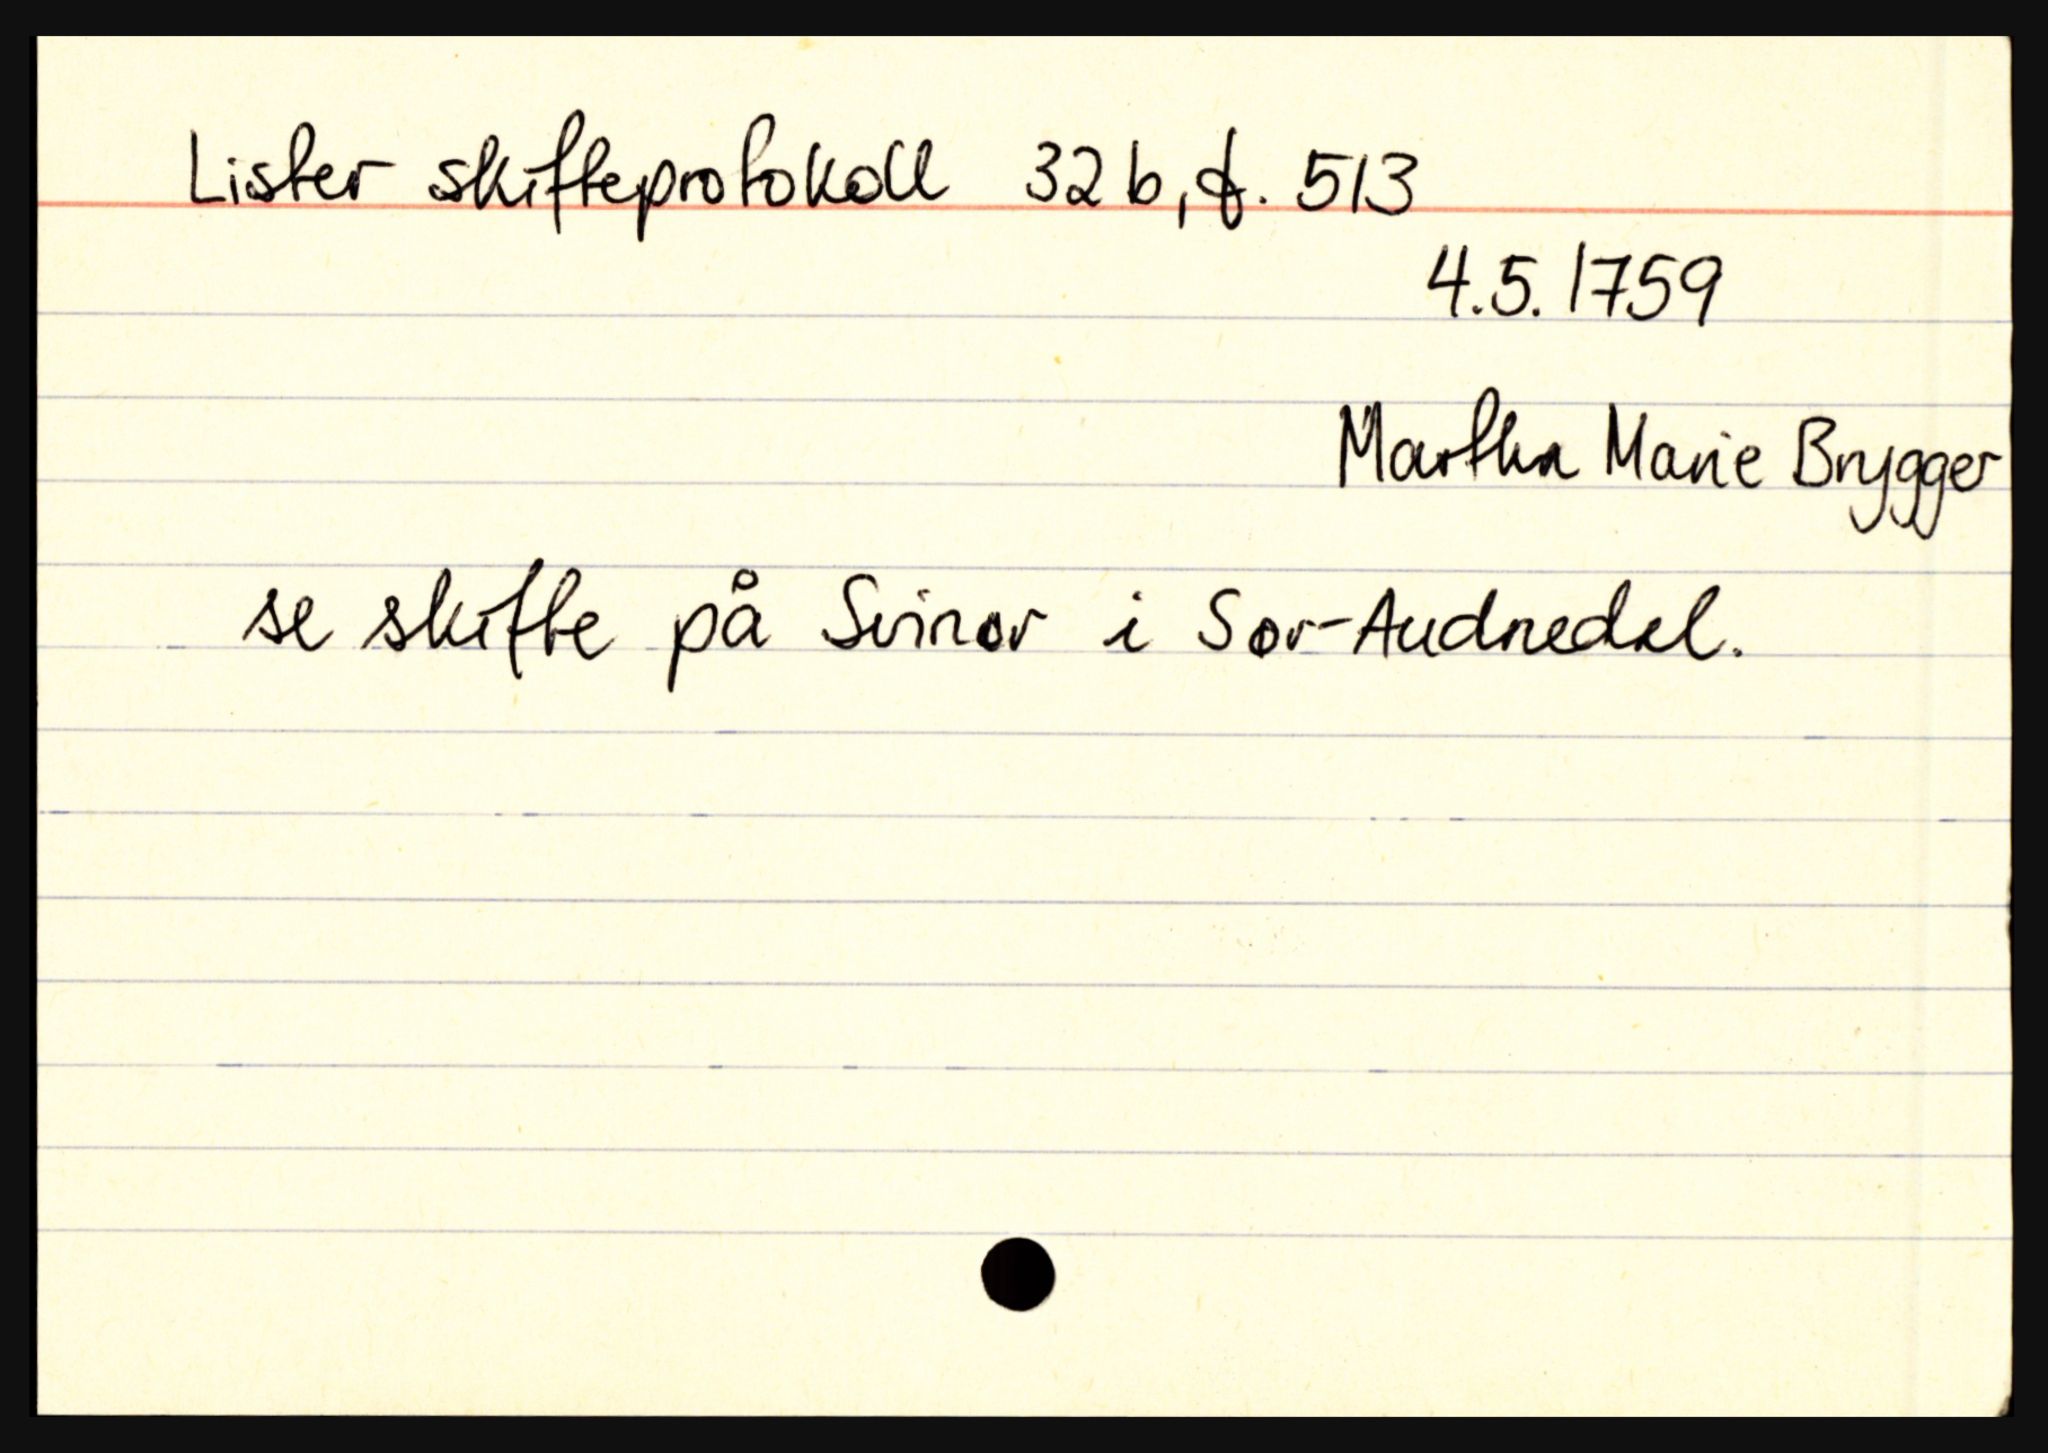 Lister skifteprotokoll 32b, f. 513
4.5.1759
Martha Marie Brygger
se skifte på Svinør i Sør-Audnedal.